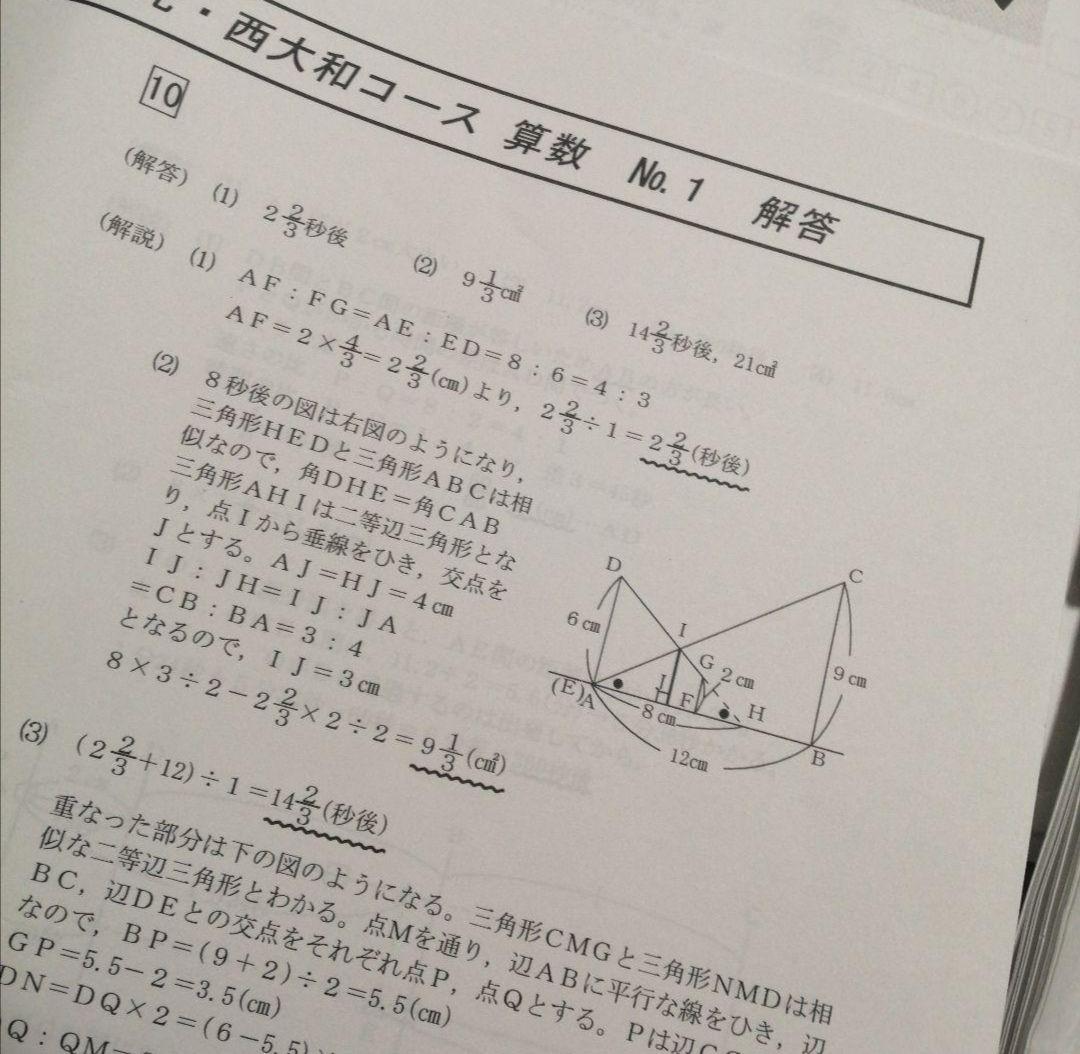 ・西大和コース 算数 No.1 解答
10
(解答) (1) 2 2/3秒後 (2) 9 1/3cm² (3) 14 2/3秒後，21cm²
(解説) (1) AF：FG＝AE：ED＝8：6＝4：3
AF＝2×4/3＝2 2/3(cm)より，2 2/3÷1＝2 2/3(秒後)
(2) 8秒後の図は右図のようになり，
三角形HEDと三角形ABCは相
似なので，角DHE＝角CAB
三角形AHIは二等辺三角形とな
り，点Iから垂線をひき，交点を
Jとする。AJ＝HJ＝4cm
IJ：JH＝IJ：JA
＝CB：BA＝3：4
となるので，IJ＝3cm
8×3÷2－2 2/3×2÷2＝9 1/3(cm²)
D
C
6cm
I
G
2cm
9cm
J
(E)
A
F
H
8cm
12cm
B
(3) (2 2/3＋12)÷1＝14 2/3(秒後)
重なった部分は下の図のようになる。三角形CMGと三角形NMDは相
似な二等辺三角形とわかる。点Mを通り，辺ABに平行な線をひき，辺
BC，辺DEとの交点をそれぞれ点P，点Qとする。Pは辺
なので，BP＝(9＋2)÷2＝5.5(cm)
GP＝5.5－2＝3.5(cm)
DN＝DQ×2＝(6－5.5)
Q：QM＝